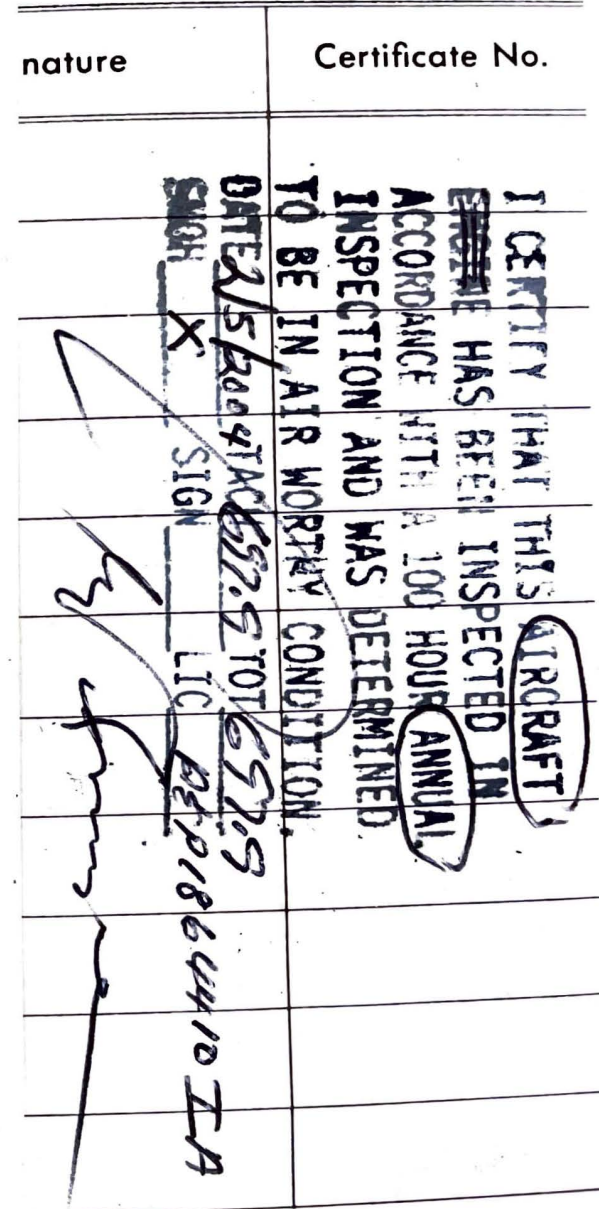 nature
Certificate No.
I CERTIFY THAT THIS AIRCRAFT
HAS BEEN INSPECTED IN
ACCORDANCE WITH A 100 HOUR ANNUAL
INSPECTION AND WAS DETERMINED
TO BE IN AIR WORTHY CONDITION.
DATE 2/5/2004 TAC 657.9 TOT 657.9
SMOH X SIGN LIC A&P1864410 IA